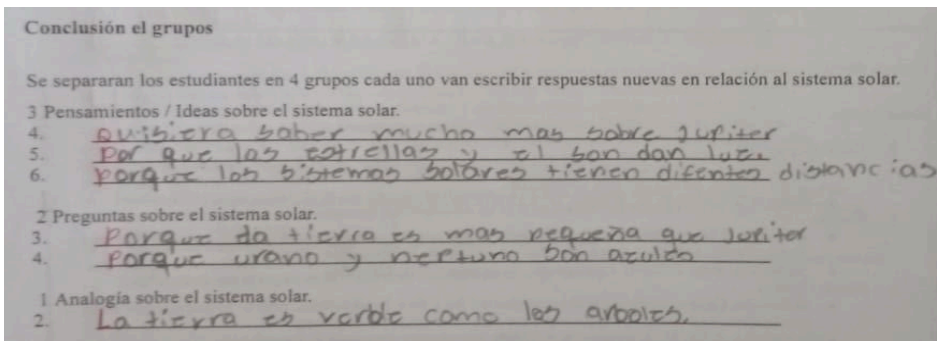 Conclusión el grupos
Se separaran los estudiantes en 4 grupos cada uno van escribir respuestas nuevas en relación al sistema solar.
3 Pensamientos / Ideas sobre el sistema solar.
4. Quisiera saber mucho mas sobre Jupiter
5. Por que las estrellas y el son dan luz.
6. Porque los sistemas solares tienen difentes distancias
2 Preguntas sobre el sistema solar.
3. Porque da tierra es mas pequeña que Jupiter
4. Porque urano y neptuno son azules
1 Analogía sobre el sistema solar.
2. La tierra es verde como los arboles.